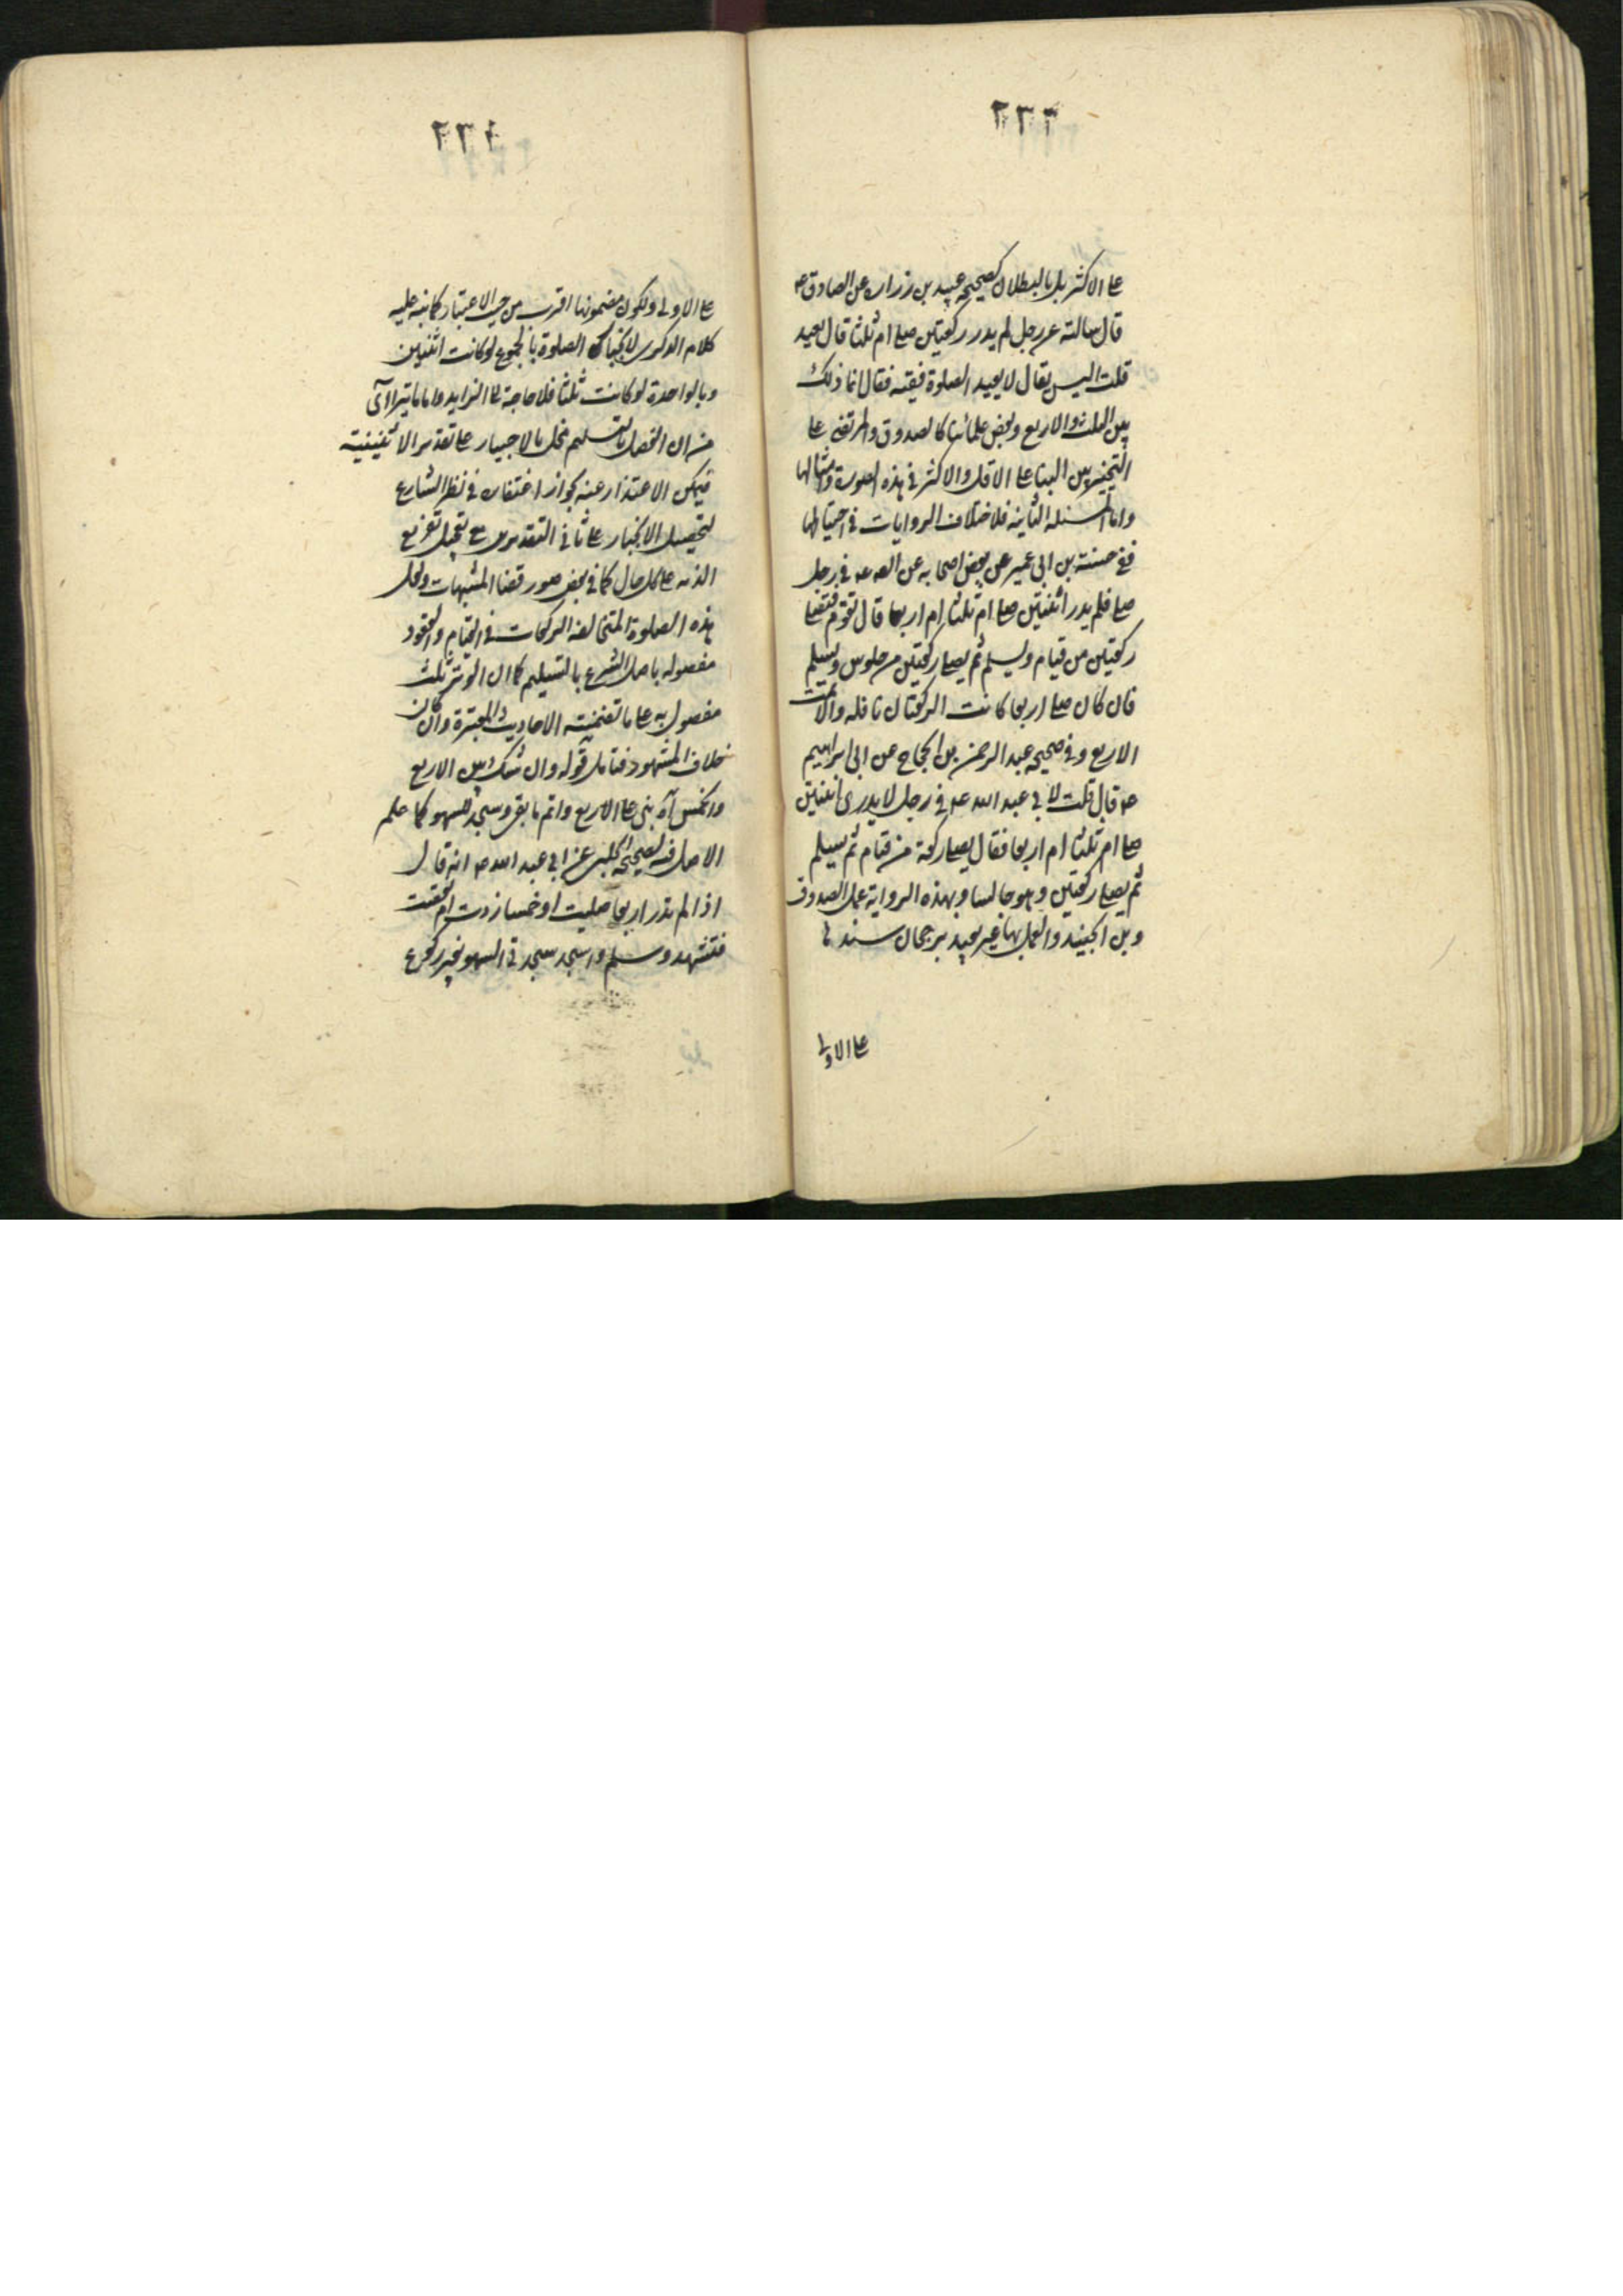 على الاكثر بل بالبطلان كصحيحه عبيد بن زراره عن الصادق ع
قال سالته عن رجل لم يدر ركعتين صلى ام ثلثا قال يعيد
قلت اليس يقال لا يعيد الصلوة فقيه فقال انما ذلك
بين الثلث والاربع وبعض علمائنا كالصدوق والمرتضى على
التخيير بين البنا على الاقل والاكثر في هذه الصورة وامثالها
واما المسئله الثانيه فلاختلاف الروايات في
ففي حسنة بن ابي عمير عن بعض اصحابه عن الصه عه في رجل
صلى فلم يدر اثنتين صلى ام ثلثا ام اربعا قال تقوم فتصلى
ركعتين من قيام ويسلم ثم يصلى ركعتين من جلوس ويسلم
فان كان صلى اربعا كانت الركعتان نافله والا تمت
الاربع وفي صحيحه عبد الرحمن بن الحجاج عن ابي ابراهيم
عه قال قلت لابي عبد الله عه في رجل لا يدرى اثنتين
صلى ام ثلثا ام اربعا فقال يصلى ركعة من قيام ثم يسلم
ثم يصلى ركعتين وهو جالسا وبهذه الرواية عمل الصدوق
وبن الجنيد والعمل بها غير بعيد برجحان سندها
على الاولى
٢٣٤
على الاولى ولكون مضمونها اقرب من حيث الاعتبار كما نبه عليه
كلام الذكرى لانجبار الصلوة بالمجموع لو كانت اثنتين
وبالواحدة لو كانت ثلثا فلا حاجة الى الزايد واما ما يترااى
من ان الفصل بالتسليم مخل بالاجبار على تقدير الاثنينية
فيمكن الاعتذار عنه بجواز اغتفاره في نظر الشارع
لتحصيل الانجبار على ثاني التقديرين مع تعجيل تفريع
الذمه على كل حال كما في بعض صور قضا المشبهات ولعل
هذه الصلوة المتخالفه الركعات في القيام والقعود
مفصوله باصل الشرع بالتسليم كما ان الوتر ثلث
مفصول به على ما تضمنته الاحاديث المعتبرة وان كان
خلاف المشهور فتامل قوله وان شك بين الاربع
والخمس اه بنى على الاربع واتم ما بقى وسجد للسهو كما علم
الاصل فيه لصحيحه الحلبى عن ابي عبد الله عه انه قال
اذا لم تدر اربعا صليت او خمسا زدت ام نقصت
فتشهد وسلم واسجد سجدتى السهو بغير ركوع